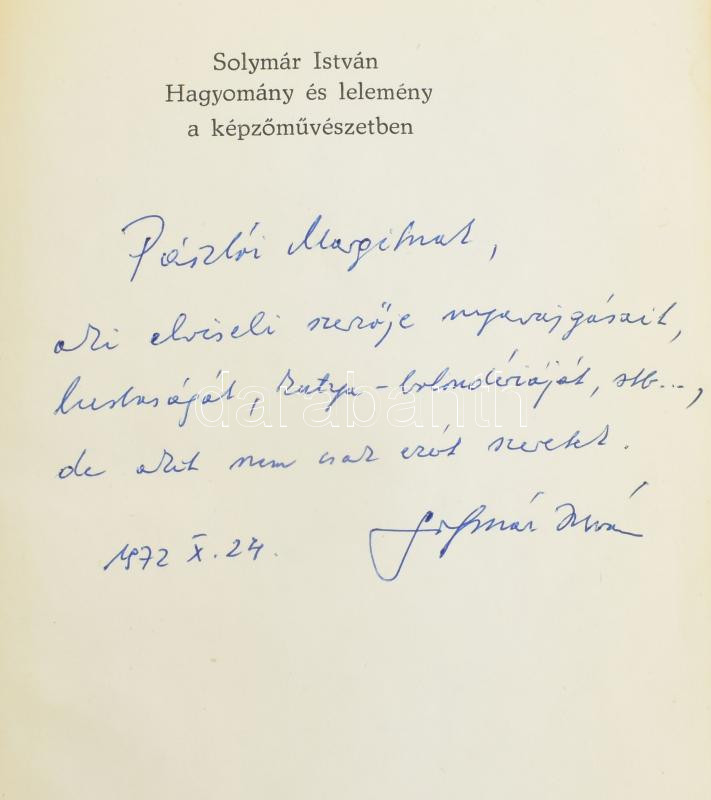 Solymár István
Hagyomány és lelemény
a képzőművészetben
Pásztói Margitnak,
aki elviseli szerzője nyavajgásait,
lustaságát, kutya-bolondériáját, stb...,
darabanth
de akit nem csak ezért szeretek.
1972 X. 24.
Solymár István